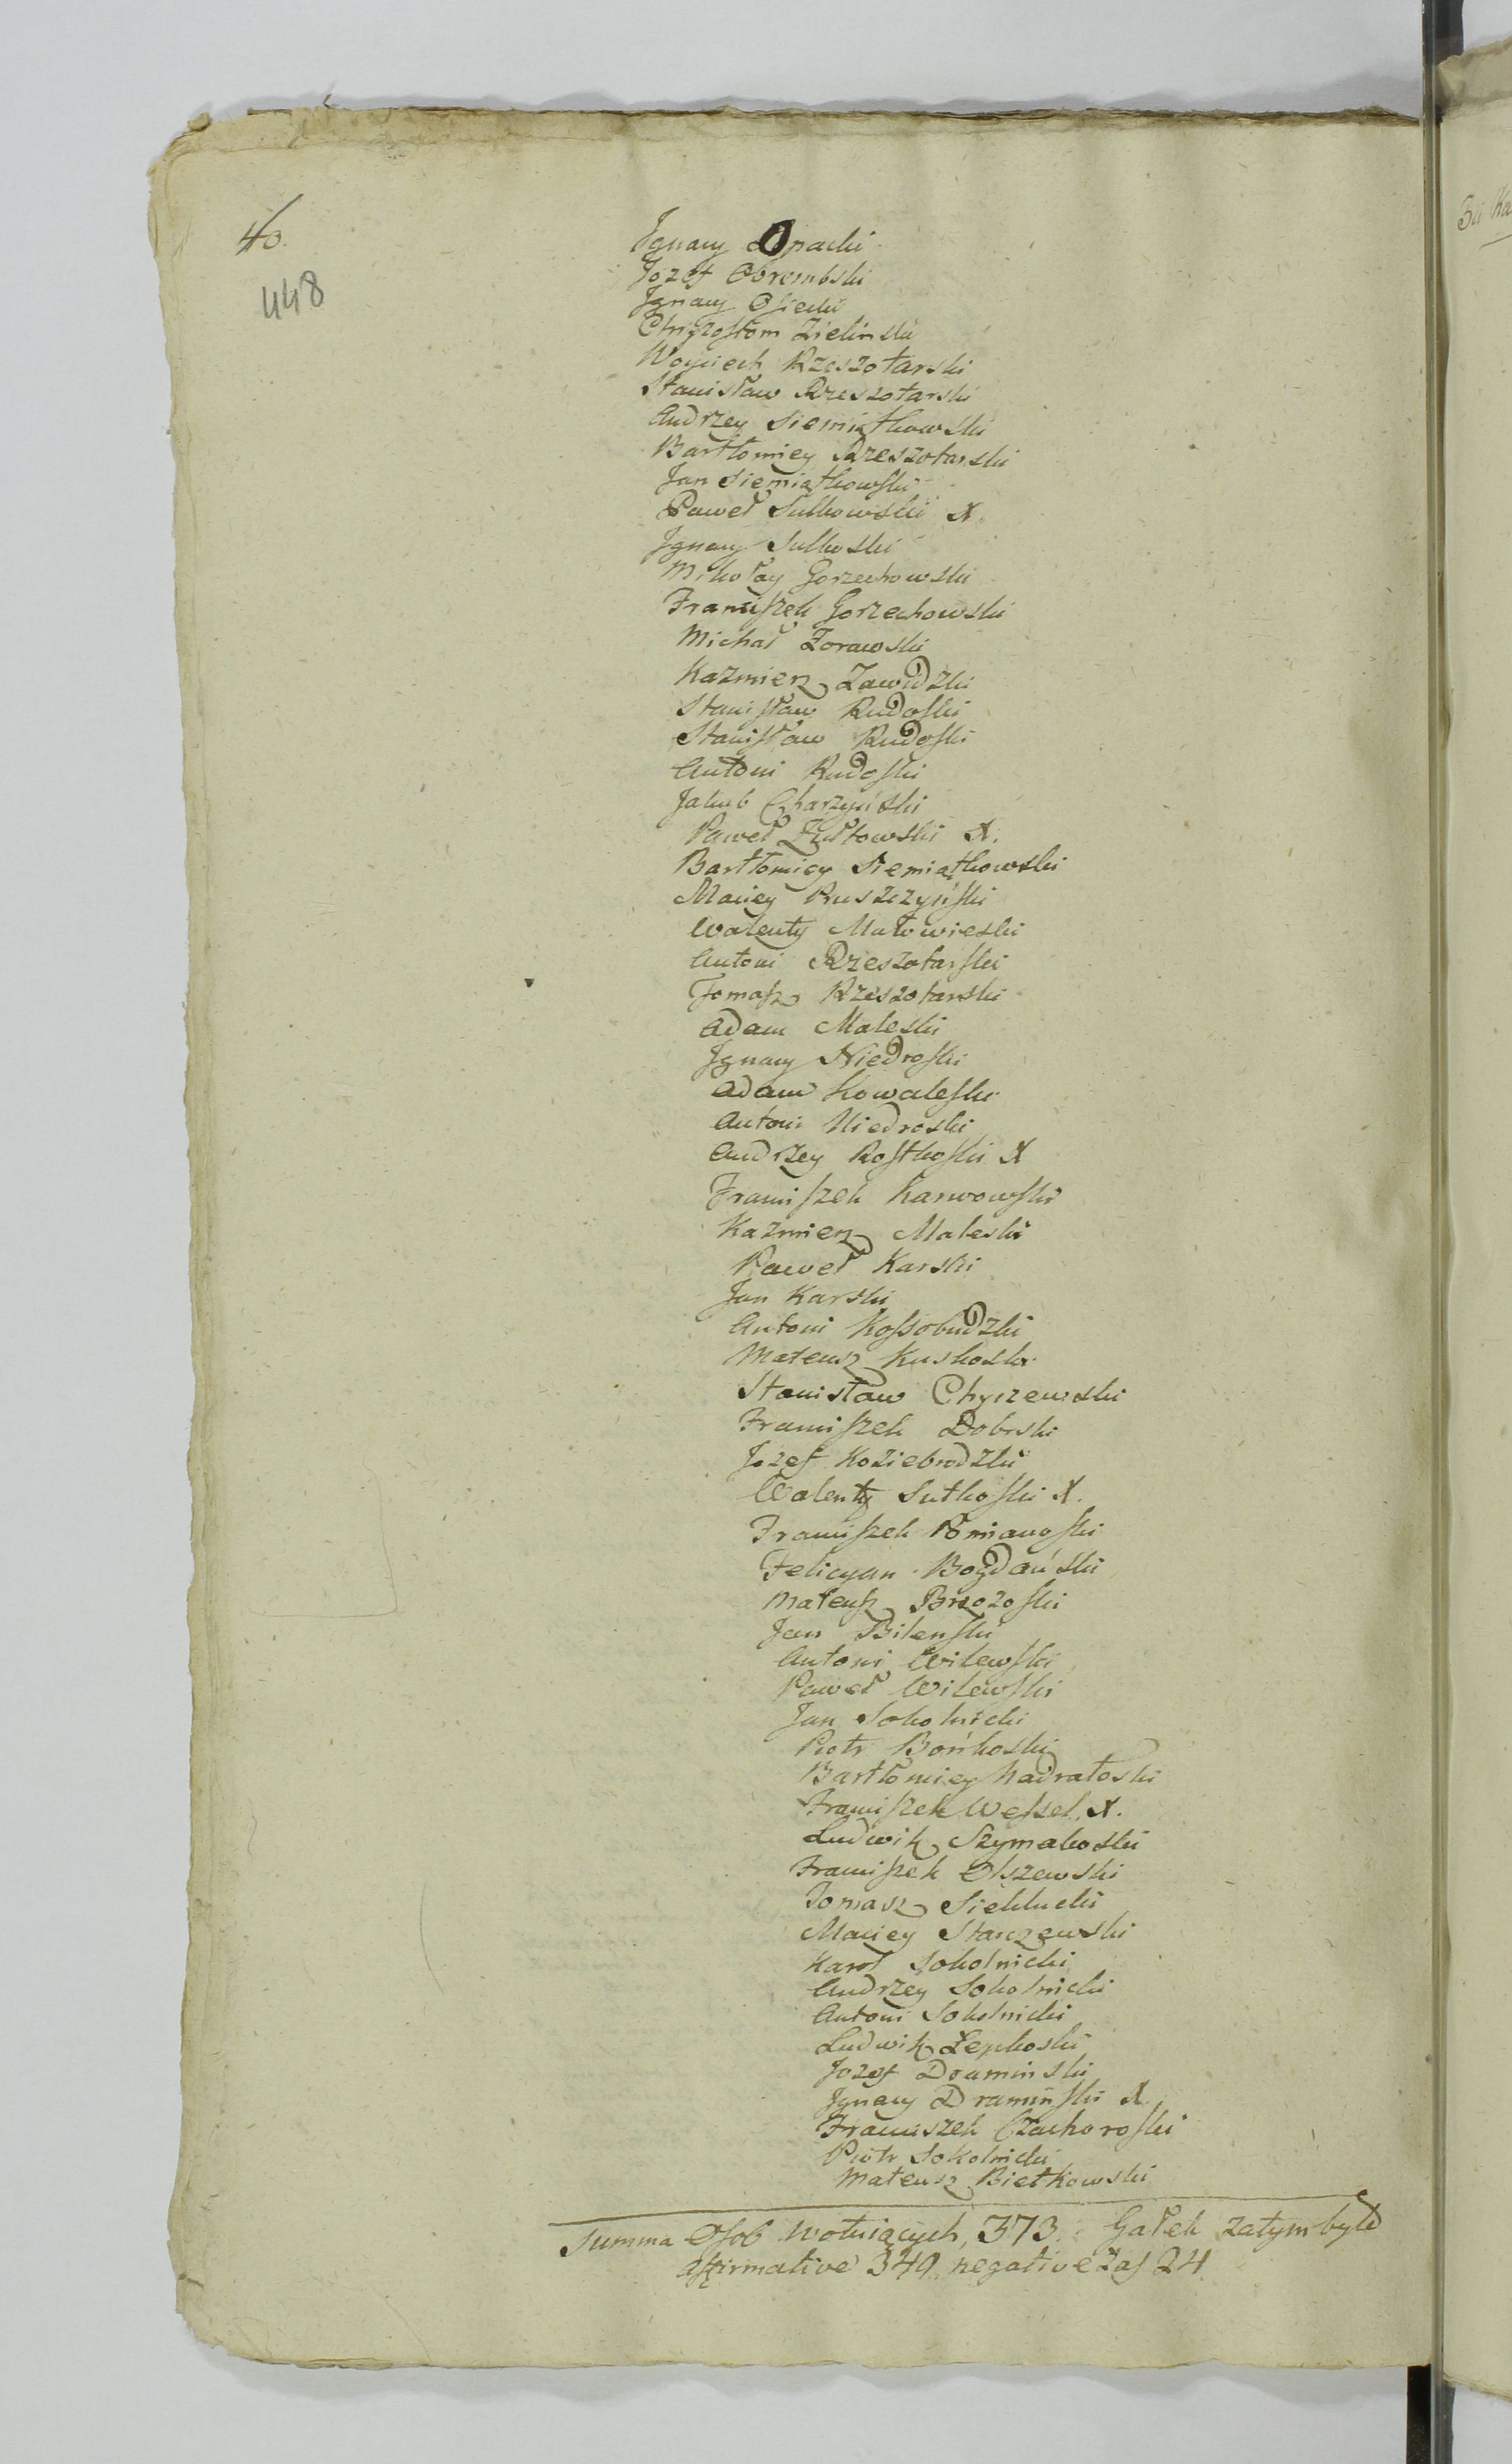 40.
448
Jgnacy Opacki
Jozef Obrembski
Jgnacy Osiecki
Chryzostom Zielinski
Woyciech Rzeszotarski
Stanisław Rzeszotarski
Andrzey Siemiątkowski
Bartłomiey Rzeszotarski
Jan Siemiątkowski
Paweł Sulkowski X
Jgnacy Sulkoski
Mikołay Gorzechowski
Franciszek Gorzechowski
Michał Zorawski
Kazmierz Zawidzki
Stanisław Rudoski
Stanisław Rudoski
Antoni Rudoski
Jakub Charzyński
Paweł Zułtowski X.
Bartłomiey Siemiątkowski
Maciey Ruszczyński
Walenty Małowieski
Antoni Rzeszotarski
Tomasz Rzeszotarski
Adam Maleski
Jgnacy Niedroski
Adam Kowaleski
Antoni Niedroski
Andrzey Rostkoski X
Franciszek Karwowski
Kazmierz Maleski
Paweł Karski
Jan Karski
Antoni Kossobudzki
Mateusz Kuskoski
Stanisław Chyczewski
Franciszek Dobrski
Jozef Koziebrodzki
Walenty Sutkoski X.
Franciszek Pomianoski
Felicyan Bogdański
Mateusz Brzozoski
Jan Bilenski
Antoni Wilewski
Paweł Wilewski
Jan Sokolnicki
Piotr Bońkoski
Bartłomiey Nadratoski
Franciszek Wessel X.
Ludwik Szymakoski
Franciszek Olszewski
Tomasz Siekłucki
Maciey Starczewski
Karol Sokolnicki
Andrzey Sokolnicki
Antoni Sokolnicki
Ludwik Łepkoski
Jozef Draminski
Jgnacy Dramiński X
Franciszek Czachoroski
Piotr Sokolnicki
Mateusz Bietkowski
Summa Osob wotuiących, 373. Gałek zatym było
affirmative 349 negative zaś 24
Bli Ka